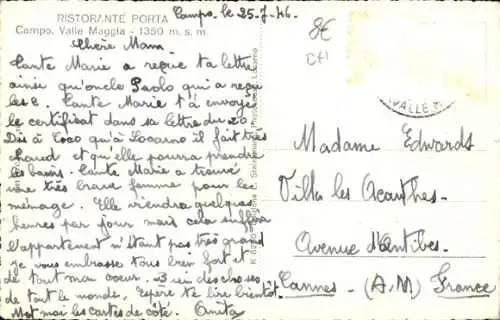 RISTORANTE PORTA
Campo, Valle Maggia - 1350 m. s. m.
Campo. le 25-7-46.
Chère Mam.
Tante Marie a reçue ta lettre
ainsi qu'oncle Paolo qui a reçu
les 2. Tante Marie t'a envoyé
le certificat dans sa lettre du 20.
Dis à Coco qu'à Locarno il fait très
chaud et qu'elle pourra prendre
les bains. Tante Marie a trouvé
une très brave femme pour les
ménage. Elle viendra quelques
heures par jour mais cela suffira
l'appartement n'étant pas très grand
Je vous embrasse tous bien fort et
de tout mon coeur. des choses
de tout le monde. Espère te lire bientôt
Mot mai les cartes de côté. Anita
Locarno
VALLE
Madame Edwards
Villa les Acanthes.
Avenue d'Antibes.
Cannes. (A.M) France